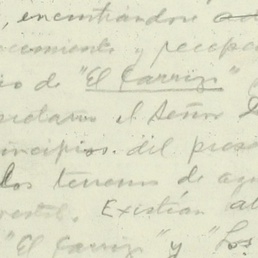 , encontrándose
ocimiento y recepc
io de "El Carrizo"
pietario el Señor
incipios del pres
los terrenos de
Existían al
"El Carrizo" y "Los